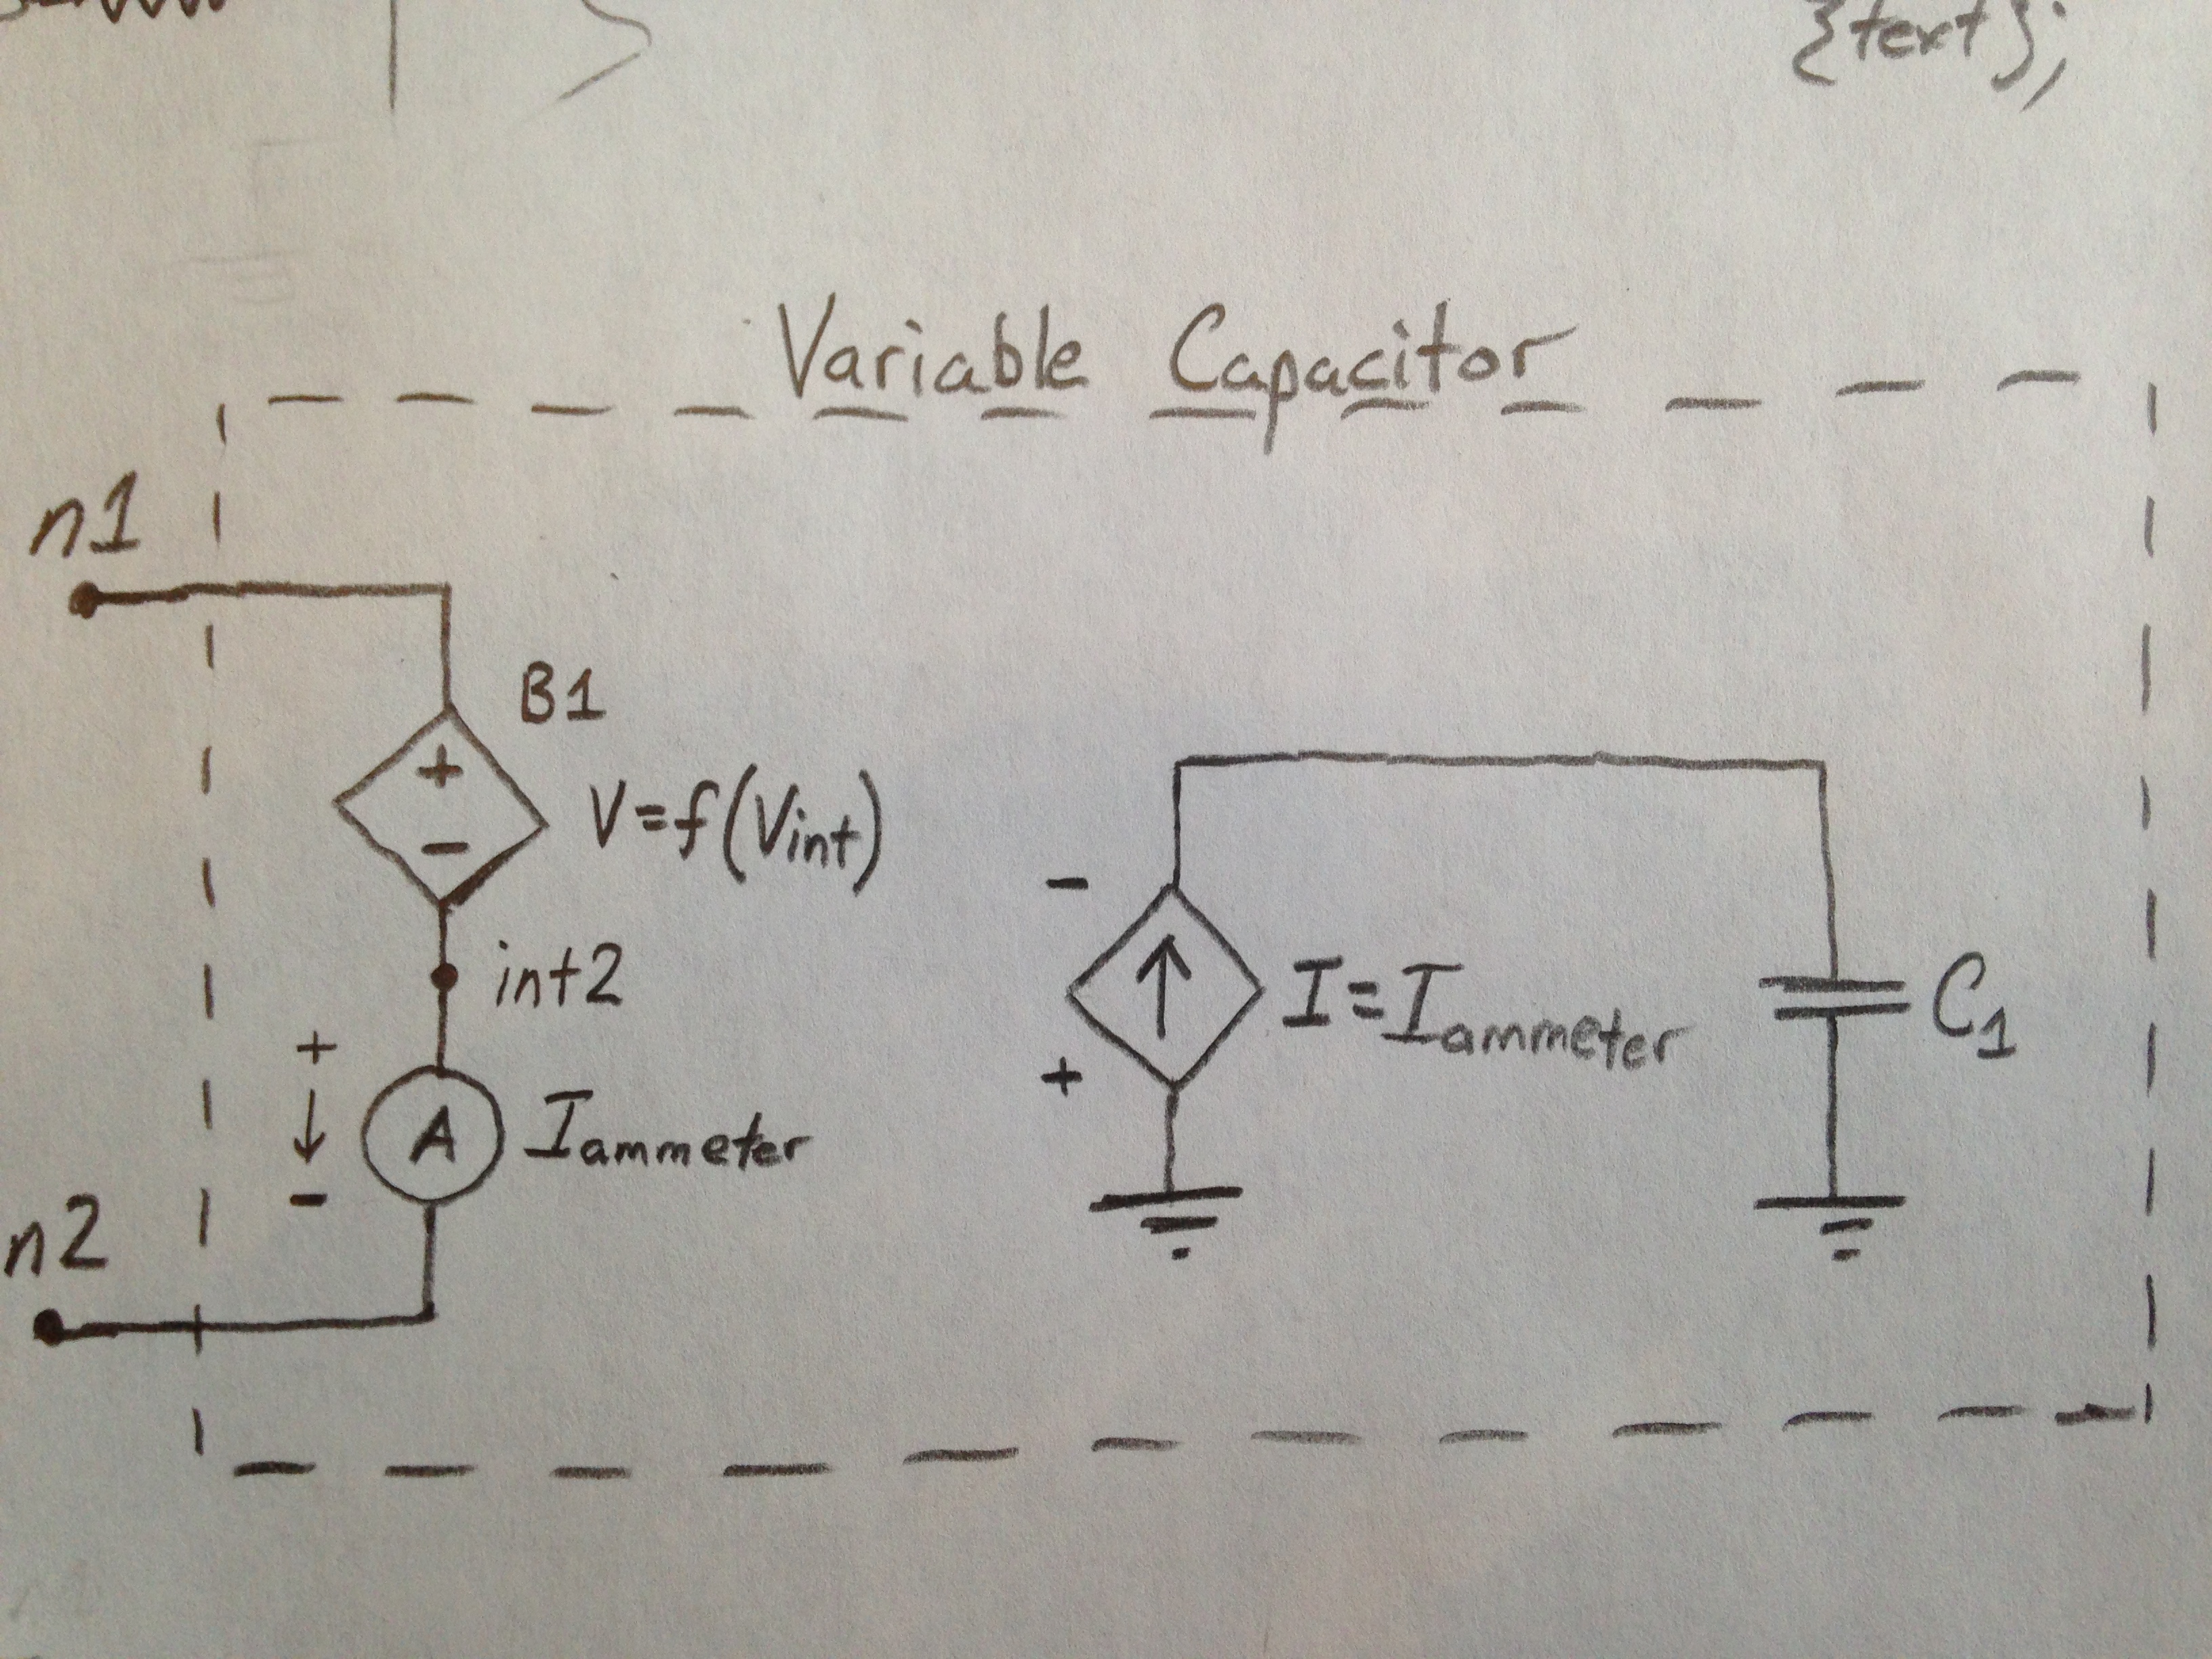 {text};
Variable Capacitor
n1
B1
+
-
V=f(Vint)
int2
+
-
A
Iammeter
n2
-
+
I=Iammeter
C1